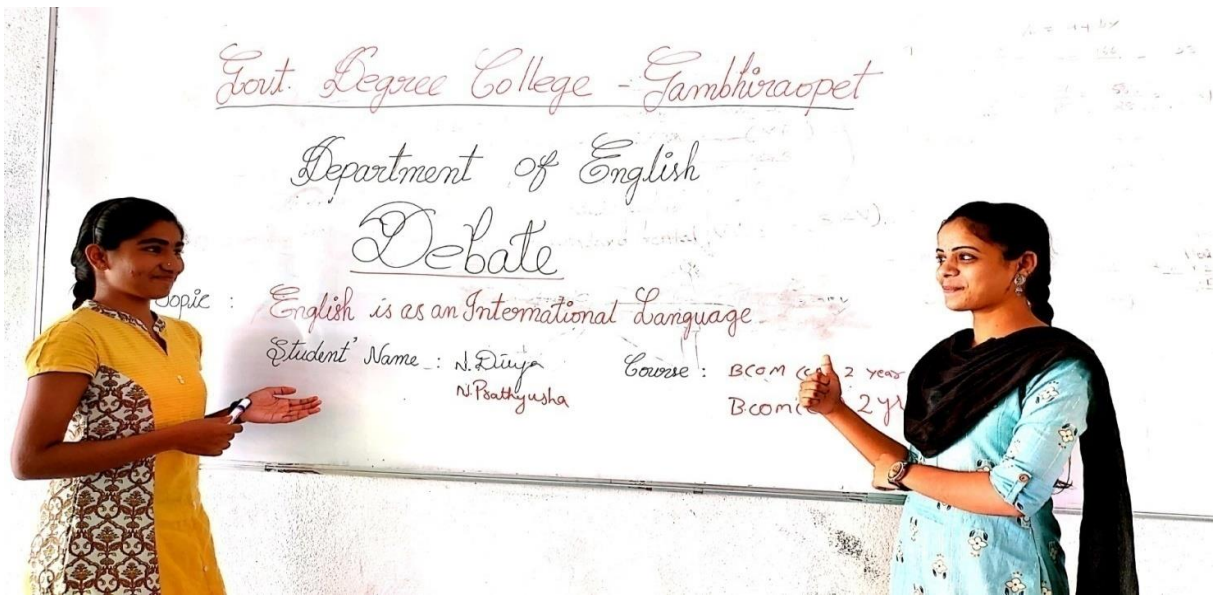 Govt. Degree College - Gambhiraopet
Department of English
Debate
Topic : English is as an International Language
Student' Name : N.Divya Course : BCOM 2 year
N.Prathyusha B.com 2 y